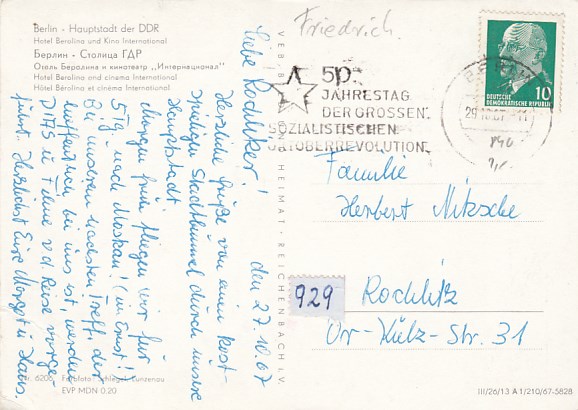 Berlin - Hauptstadt der DDR
Hotel Berolina und Kino International
Берлин - Столица ГДР
Отель Беролина и кинотеатр „Интернационал"
Hotel Berolina and cinema International
Hôtel Bérolina et cinéma International
Friedrich.
50.
JAHRESTAG
DER GROSSEN
SOZIALISTISCHEN
OKTOBERREVOLUTION
BERLIN
10
DEUTSCHE
DEMOKRATISCHE REPUBLIK
VEB BILD HEIMAT REICHENBACH I. V.
den 27.10.67
Liebe Rochlitzer!
Herzliche Grüße von einem
Stadtbummel durch unsere
Hauptstadt.
Morgen früh fliegen wir für
5 Tg. nach Moskau! (im Ernst!)
Bei unserem nächsten Treff, der
hoffentlich bei uns ist, werden
DIAS u. Filme v. d. Reise vorge-
führt. Herzlichst Eure Margot u. Hans.
Familie
Herbert Nitzsche
929
Rochlitz
Dr-Külz-Str. 31
Nr. 6206 Farbfoto: Schlegel, Lunzenau
EVP MDN 0.20
III/26/13 A 1/210/67-5828